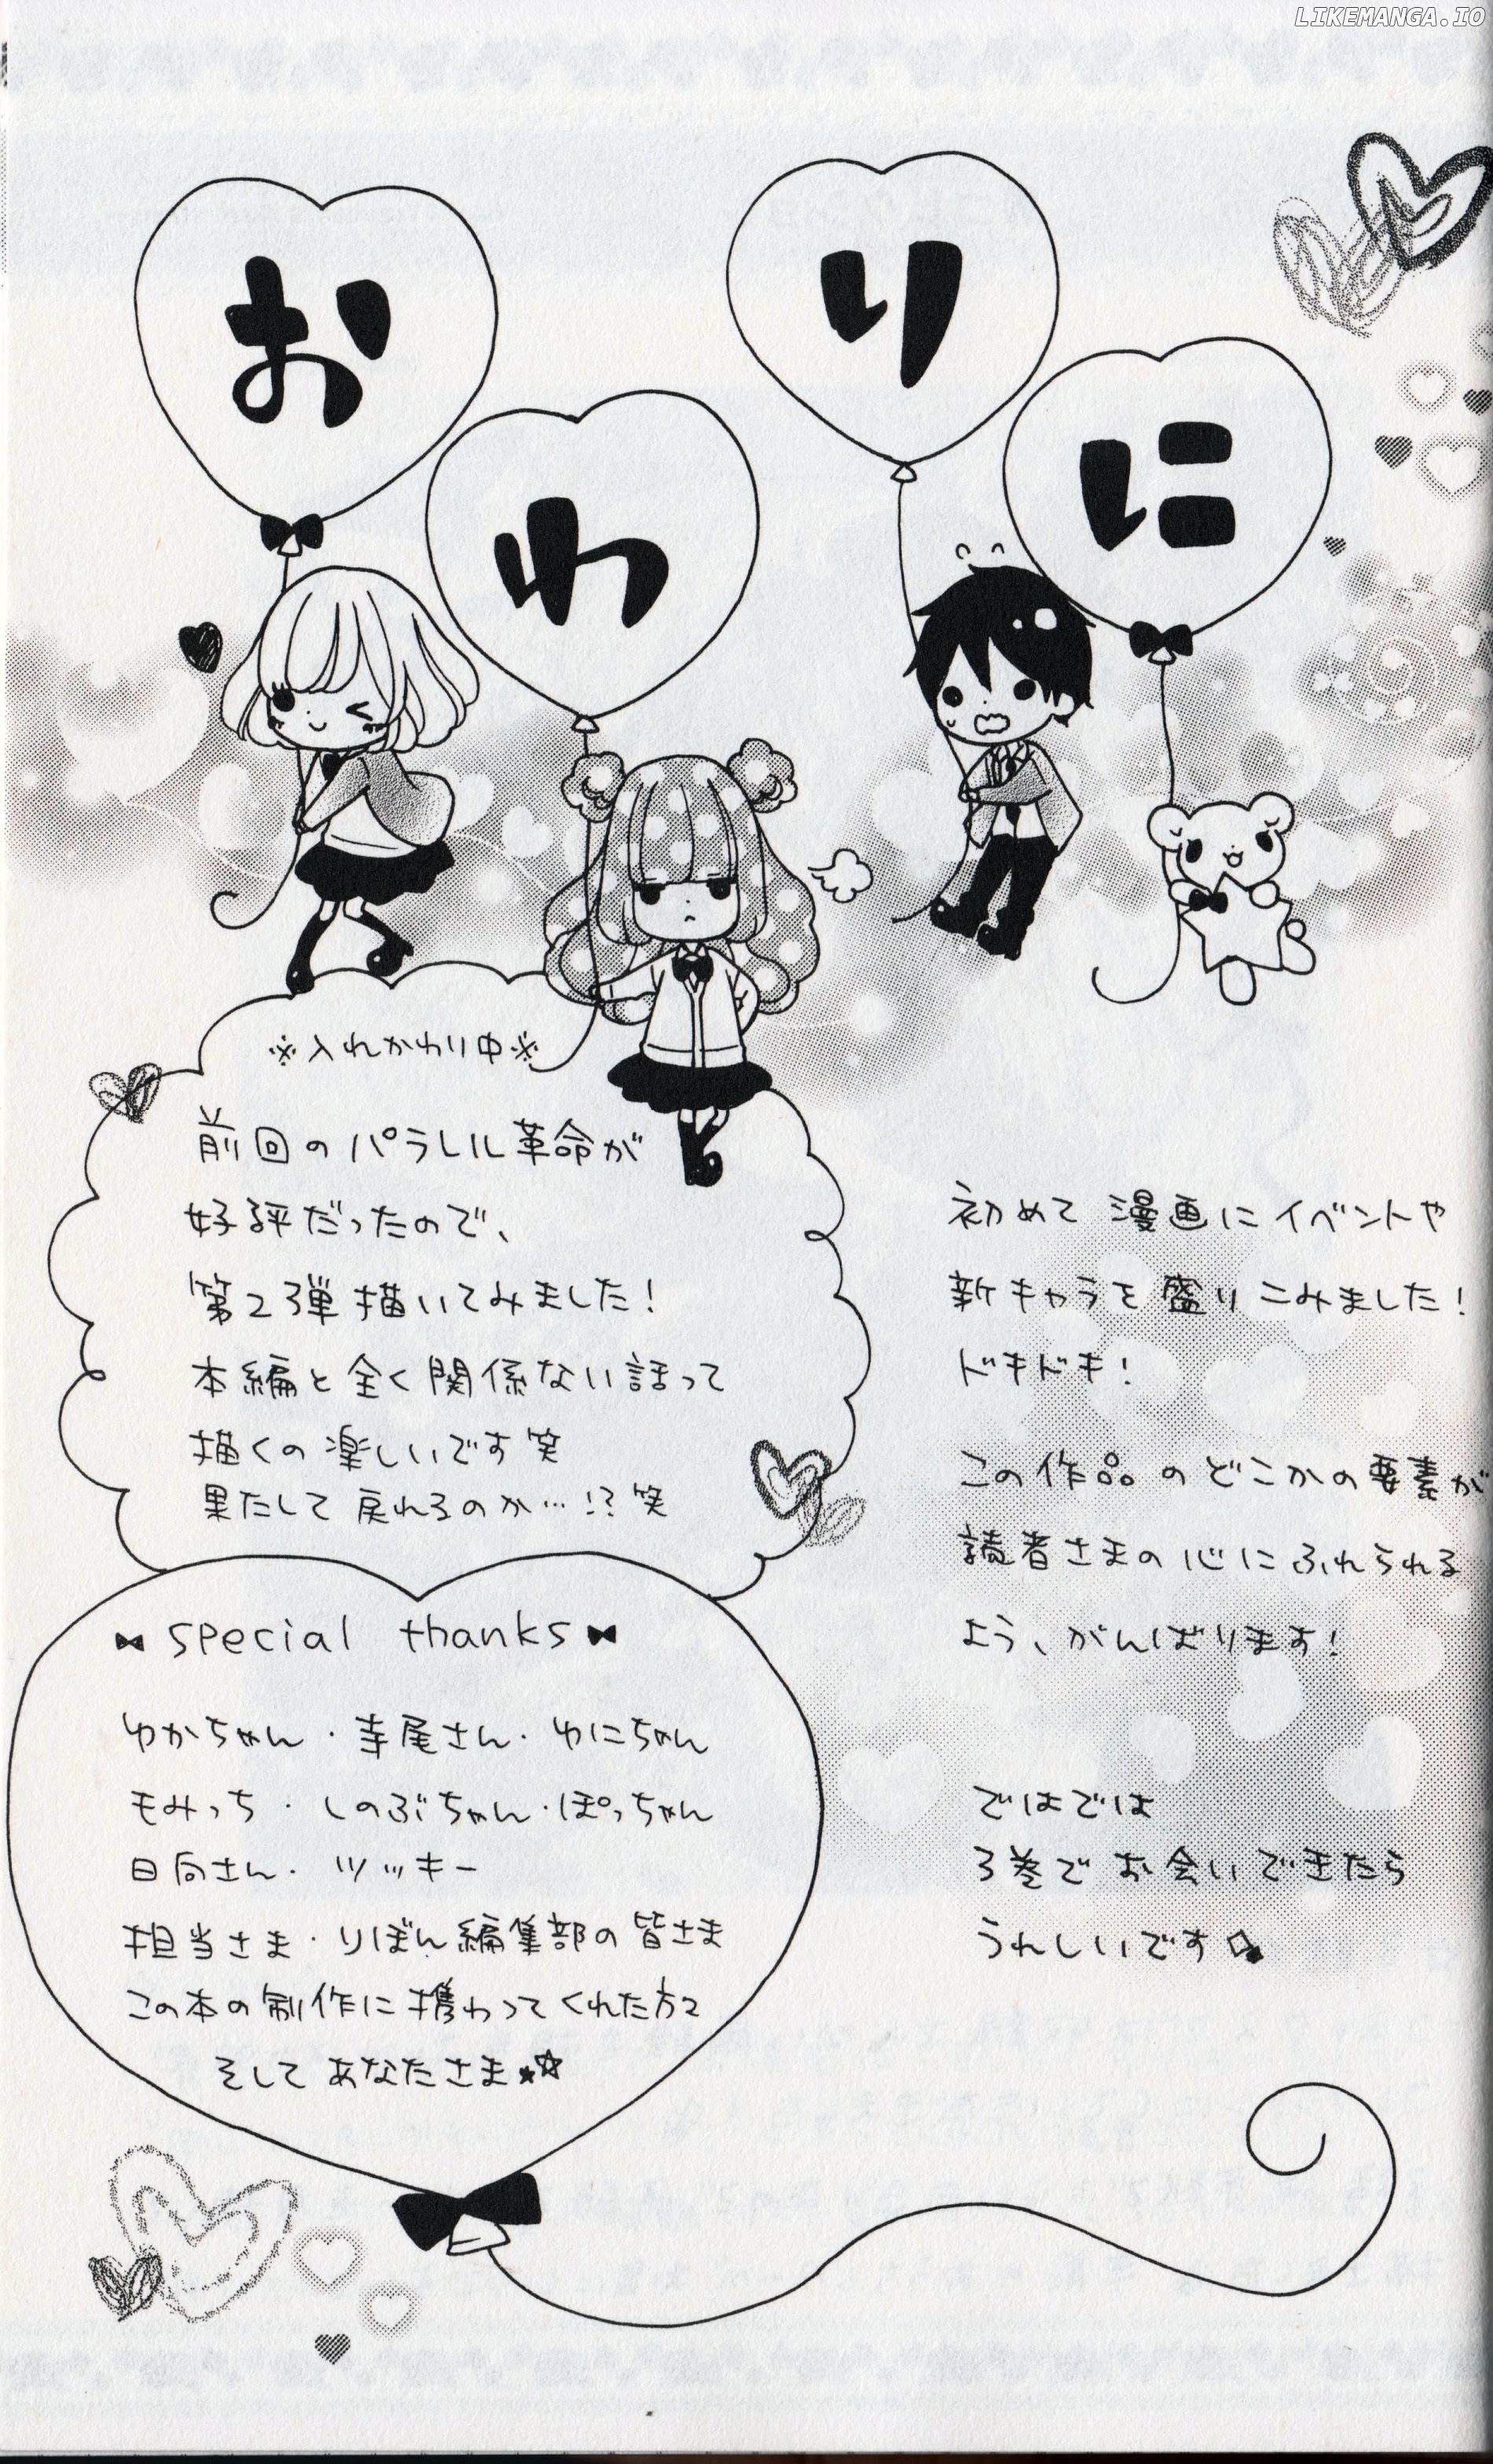 LIKEMANGA.IO
おわりに
※入れかわり中※
前回のパラレル革命が
好評だったので、
第2弾描いてみました!
本編と全く関係ない話って
描くの楽しいです笑
果たして戻れるのか…!?笑
special thanks
ゆかちゃん・寺尾さん・ゆにちゃん
もみっち・しのぶちゃん・ぽっちゃん
日向さん・ツッキー
担当さま・りぼん編集部の皆さま
この本の制作に携わってくれた方々
そしてあなたさま
初めて漫画にイベントや
新キャラを盛りこみました!
ドキドキ!
この作品のどこかの要素が
読者さまの心にふれられる
よう、がんばります!
ではでは
3巻でお会いできたら
うれしいです